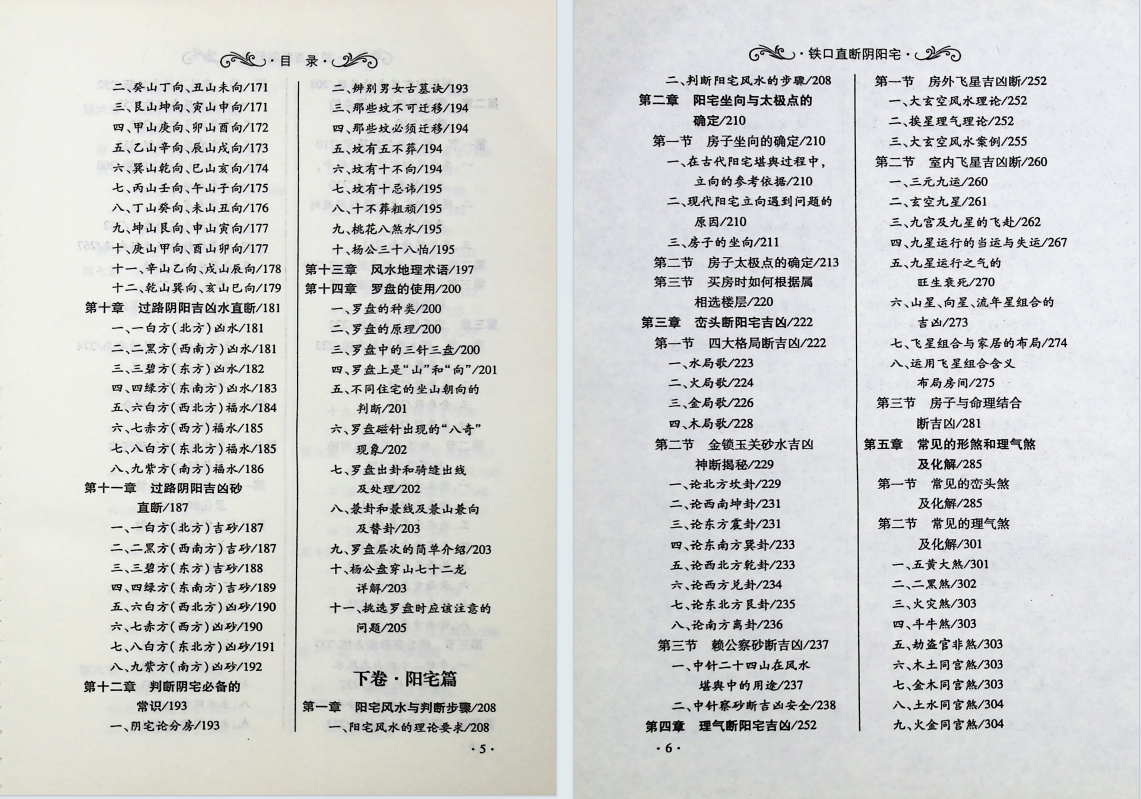 ·目 录·
二、癸山丁向、丑山未向/171
三、艮山坤向、寅山申向/171
四、甲山庚向、卯山酉向/172
五、乙山辛向、辰山戌向/173
六、巽山乾向、巳山亥向/174
七、丙山壬向、午山子向/175
八、丁山癸向、未山丑向/176
九、坤山艮向、申山寅向/177
十、庚山甲向、酉山卯向/177
十一、辛山乙向、戌山辰向/178
十二、乾山巽向、亥山巳向/179
第十章 过路阴阳吉凶水直断/181
一、一白方(北方)凶水/181
二、二黑方(西南方)凶水/181
三、三碧方(东方)凶水/182
四、四绿方(东南方)凶水/183
五、六白方(西北方)福水/184
六、七赤方(西方)福水/185
七、八白方(东北方)福水/185
八、九紫方(南方)福水/186
第十一章 过路阴阳吉凶砂
直断/187
一、一白方(北方)吉砂/187
二、二黑方(西南方)吉砂/187
三、三碧方(东方)吉砂/188
四、四绿方(东南方)吉砂/189
五、六白方(西北方)凶砂/190
六、七赤方(西方)凶砂/190
七、八白方(东北方)凶砂/191
八、九紫方(南方)凶砂/192
第十二章 判断阴宅必备的
常识/193
一、阴宅论分房/193
二、辨别男女古墓诀/193
三、那些坟不可迁移/194
四、那些坟必须迁移/194
五、坟有五不葬/194
六、坟有十不向/194
七、坟有十忌讳/195
八、十不葬粗顽/195
九、桃花八煞水/195
十、杨公三十八怕/195
第十三章 风水地理术语/197
第十四章 罗盘的使用/200
一、罗盘的种类/200
二、罗盘的原理/200
三、罗盘中的三针三盘/200
四、罗盘上是“山”和“向”/201
五、不同住宅的坐山朝向的
判断/201
六、罗盘磁针出现的“八奇”
现象/202
七、罗盘出卦和骑缝出线
及处理/202
八、兼卦和兼线及兼山兼向
及替卦/203
九、罗盘层次的简单介绍/203
十、杨公盘穿山七十二龙
详解/203
十一、挑选罗盘时应该注意的
问题/205
下卷·阳宅篇
第一章 阳宅风水与判断步骤/208
一、阳宅风水的理论要求/208
·5·
·铁口直断阴阳宅·
二、判断阳宅风水的步骤/208
第二章 阳宅坐向与太极点的
确定/210
第一节 房子坐向的确定/210
一、在古代阳宅堪舆过程中,
立向的参考依据/210
二、现代阳宅立向遇到问题的
原因/210
三、房子的坐向/211
第二节 房子太极点的确定/213
第三节 买房时如何根据属
相选楼层/220
第三章 峦头断阳宅吉凶/222
第一节 四大格局断吉凶/222
一、水局歌/223
二、火局歌/224
三、金局歌/226
四、木局歌/228
第二节 金锁玉关砂水吉凶
神断揭秘/229
一、论北方坎卦/229
二、论西南坤卦/231
三、论东方震卦/231
四、论东南方巽卦/233
五、论西北方乾卦/233
六、论西方兑卦/234
七、论东北方艮卦/235
八、论南方离卦/236
第三节 赖公察砂断吉凶/237
一、中针二十四山在风水
堪舆中的用途/237
二、中针察砂断吉凶安全/238
第四章 理气断阳宅吉凶/252
第一节 房外飞星吉凶断/252
一、大玄空风水理论/252
二、挨星理气理论/252
三、大玄空风水案例/255
第二节 室内飞星吉凶断/260
一、三元九运/260
二、玄空九星/261
三、九宫及九星的飞赴/262
四、九星运行的当运与失运/267
五、九星运行之气的
旺生衰死/270
六、山星、向星、流年星组合的
吉凶/273
七、飞星组合与家居的布局/274
八、运用飞星组合含义
布局房间/275
第三节 房子与命理结合
断吉凶/281
第五章 常见的形煞和理气煞
及化解/285
第一节 常见的峦头煞
及化解/285
第二节 常见的理气煞
及化解/301
一、五黄大煞/301
二、二黑煞/302
三、火灾煞/303
四、斗牛煞/303
五、劫盗官非煞/303
六、木土同宫煞/303
七、金木同宫煞/303
八、土水同宫煞/304
九、火金同宫煞/304
·6·